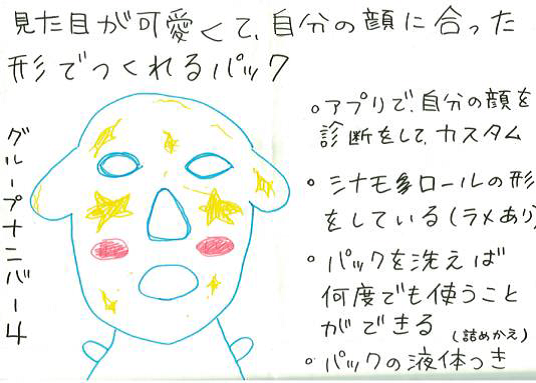 見た目が可愛くて、自分の顔に合った
形でつくれるパック
グループナンバー4
。アプリで、自分の顔を
診断をして、カスタム
・シナモ多ロールの形
をしている(ラメあり)
・パックを洗えば
何度でも使うこと
ができる
(詰めかえ)
・パックの液体つき